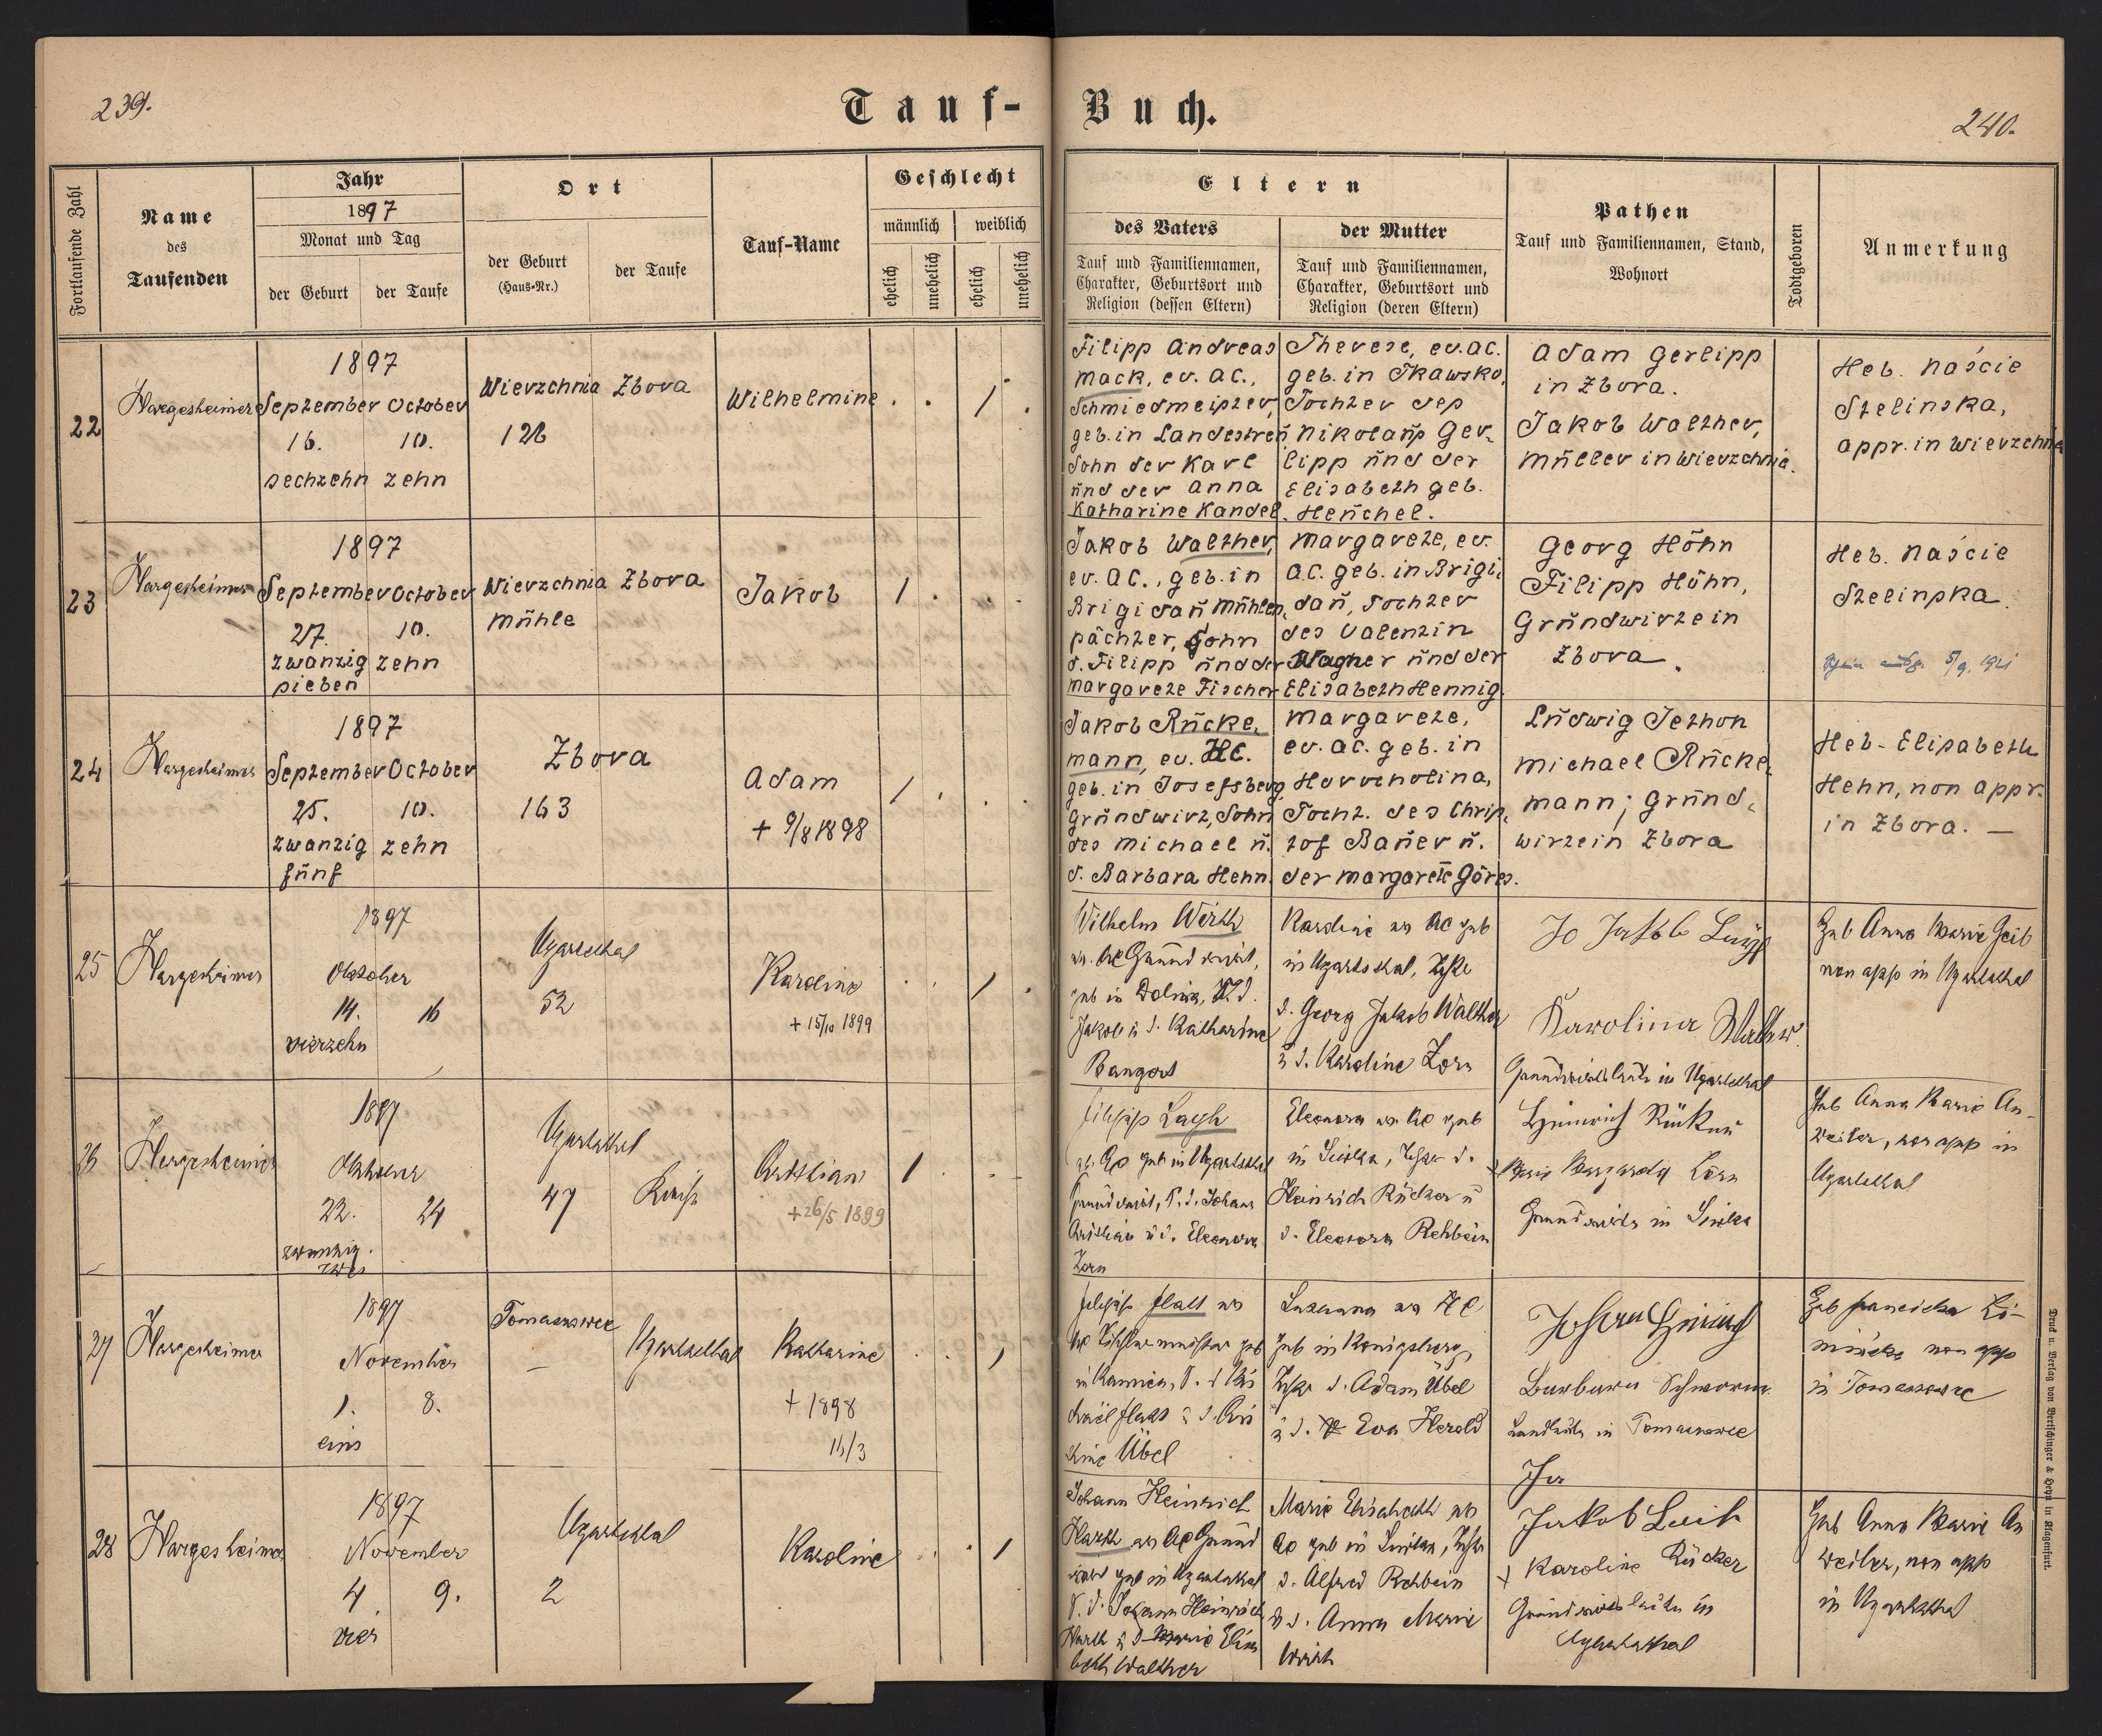 239.
Tauf-
Buch.
240.
Fortlaufende Zahl
Name
des
Taufenden
Jahr
1897
Monat und Tag
der Geburt
der Taufe
Ort
der Geburt
(Haus-Nr.)
der Taufe
Tauf-Name
Geschlecht
männlich
weiblich
ehelich
unehelich
ehelich
unehelich
Eltern
des Vaters
Tauf und Familiennamen,
Charakter, Geburtsort und
Religion (dessen Eltern)
der Mutter
Tauf und Familiennamen,
Charakter, Geburtsort und
Religion (deren Eltern)
Pathen
Tauf und Familiennamen, Stand,
Wohnort
Todtgeboren
Anmerkung
22
Hargesheimer
1897
September October
16. 10.
sechzehn zehn
Wierzchnia Zbora
126
Wilhelmine
1
Filipp Andreas
Mack, ev. AC.,
Schmiedmeister,
geb. in Landestreu
Sohn der Karl
und der Anna
Katharine Kandel.
Therese, ev. AC.
geb. in Tkawsko,
Tochter des
Nikolaus Ger-
lipp und der
Elisabeth geb.
Henchel.
Adam Gerlipp
in Zbora.
Jakob Walther,
Müller in Wierzchnia.
Heb. Naście
Stelinska,
appr. in Wierzchnia
23
Hargesheimer
1897
September October
27. 10.
zwanzig zehn
sieben
Wierzchnia Zbora
Mühle
Jakob
1
Jakob Walther,
ev. AC., geb. in
Brigidau Mühlen-
pächter, Sohn
d. Filipp und der
Margarete Fischer
Margarete, ev.
AC. geb. in Brigi-
dau, Tochter
des Valentin
Wagner und der
Elisabeth Hennig.
Georg Höhn
Filipp Höhn,
Grundwirte in
Zbora.
Heb. Naście
Stelinska.
5/9. 1921
24
Hargesheimer
1897
September October
25. 10.
zwanzig zehn
fünf
Zbora
163
Adam
+ 9/8 1898
1
Jakob Rücke-
mann, ev. HC.
geb. in Josefsberg,
Grundwirt, Sohn
des Michael u.
d. Barbara Hehn.
Margarete,
ev. AC. geb. in
Horocholina,
Tocht. des Chris-
tof Bauer u.
der Margarete Göres.
Ludwig Jethon
Michael Rücke-
mann; Grund-
wirte in Zbora
Heb. Elisabeth
Hehn, non appr.
in Zbora. —
25
Hargesheimer
1897
Oktober
14. 16
vierzehn
Ugartsthal
52
Karoline
+ 15/10 1899
1
Wilhelm Wirth
ev. AC Grundwirt,
geb in Dolina, S. d.
Jakob u d. Katharine
Bangert
Karoline ev AC geb
in Ugartsthal, Tocht
d. Georg Jakob Walther
u d. Karoline Zorn
Karolina Walther
Grundwirtsleute in Ugartsthal
Heb Anna Marie Geib
non app in Ugartsthal
26
Hargesheimer
1897
Oktober
22. 24
zwanzig
zwei
Ugartsthal
47
Kristian
+ 26/5 1899
1
geb in Ugartsthal
Grundwirt, S. d. Johann
Kristian u d. Eleonora
Zorn
Eleonora ev AC geb
Heinrich Rücker u
d. Eleonora Rehbein
Heinrich Rücker
Grundwirte in
Heb Anna Marie An-
weiler, non app in
Ugartsthal
27
Hargesheimer
1897
November
1. 8.
eins
Tomaszowce
—
Ugartsthal
Katharine
+ 1898
16/3
1
ev
AC Tischlermeister geb
Übel
ev AC
geb in Königsberg
d. Adam Übel
u d. Eva Herold
Johann Heinrich
Barbara Schworm
Landleute in Tomaszowce
in Tomaszowce
28
Hargesheimer
1897
November
4 9.
vier
Ugartsthal
2
Karoline
1
Johann Heinrich
Harth ev AC Grund
wirt geb in Ugartsthal
S. d. Johann Heinrich
Harth u d Marie Elisa
beth Walther
Marie Elisabeth ev
d. Alfred Rehbein
u d. Anna Marie
Wirth
Karoline Rücker
Grundwirtsleute in
Ugartsthal
Heb Anna Marie An
weiler, non app
in Ugartsthal
Druck u. Verlag von Bertschinger & Heyn in Klagenfurt.